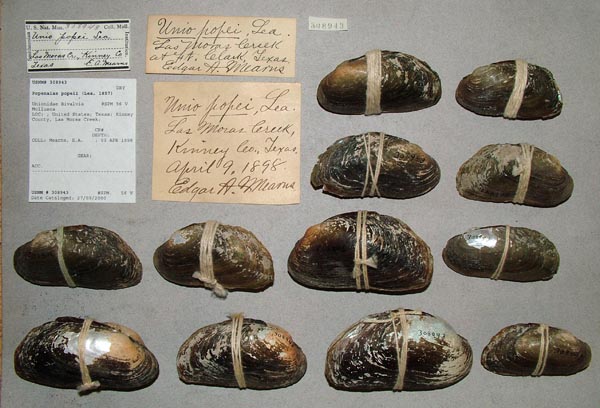 U. S. Nat. Mus. Coll. Moll.
Unio popei Lea
Las Moras Cr., Kinney Co.
Texas E.A. Mearns
Unio popei, Lea.
Las Moras Creek
at Ft. Clark, Texas.
Edgar A. Mearns
308943
USNM# 308943
DRY
Popenaias popeii (Lea, 1857)
Unionidae Bivalvia
Mollusca
LOC: , United States; Texas; Kinney
County, Las Moras Creek.
CR#
DEPTH:
COLL: Mearns, E.A. 09 APR 1898
GEAR:
ACC.
USNM # 308943
Date Cataloged: 27/09/2000
Unio popei, Lea.
Las Moras Creek,
Kinney Co., Texas.
April 9, 1898
Edgar A. Mearns